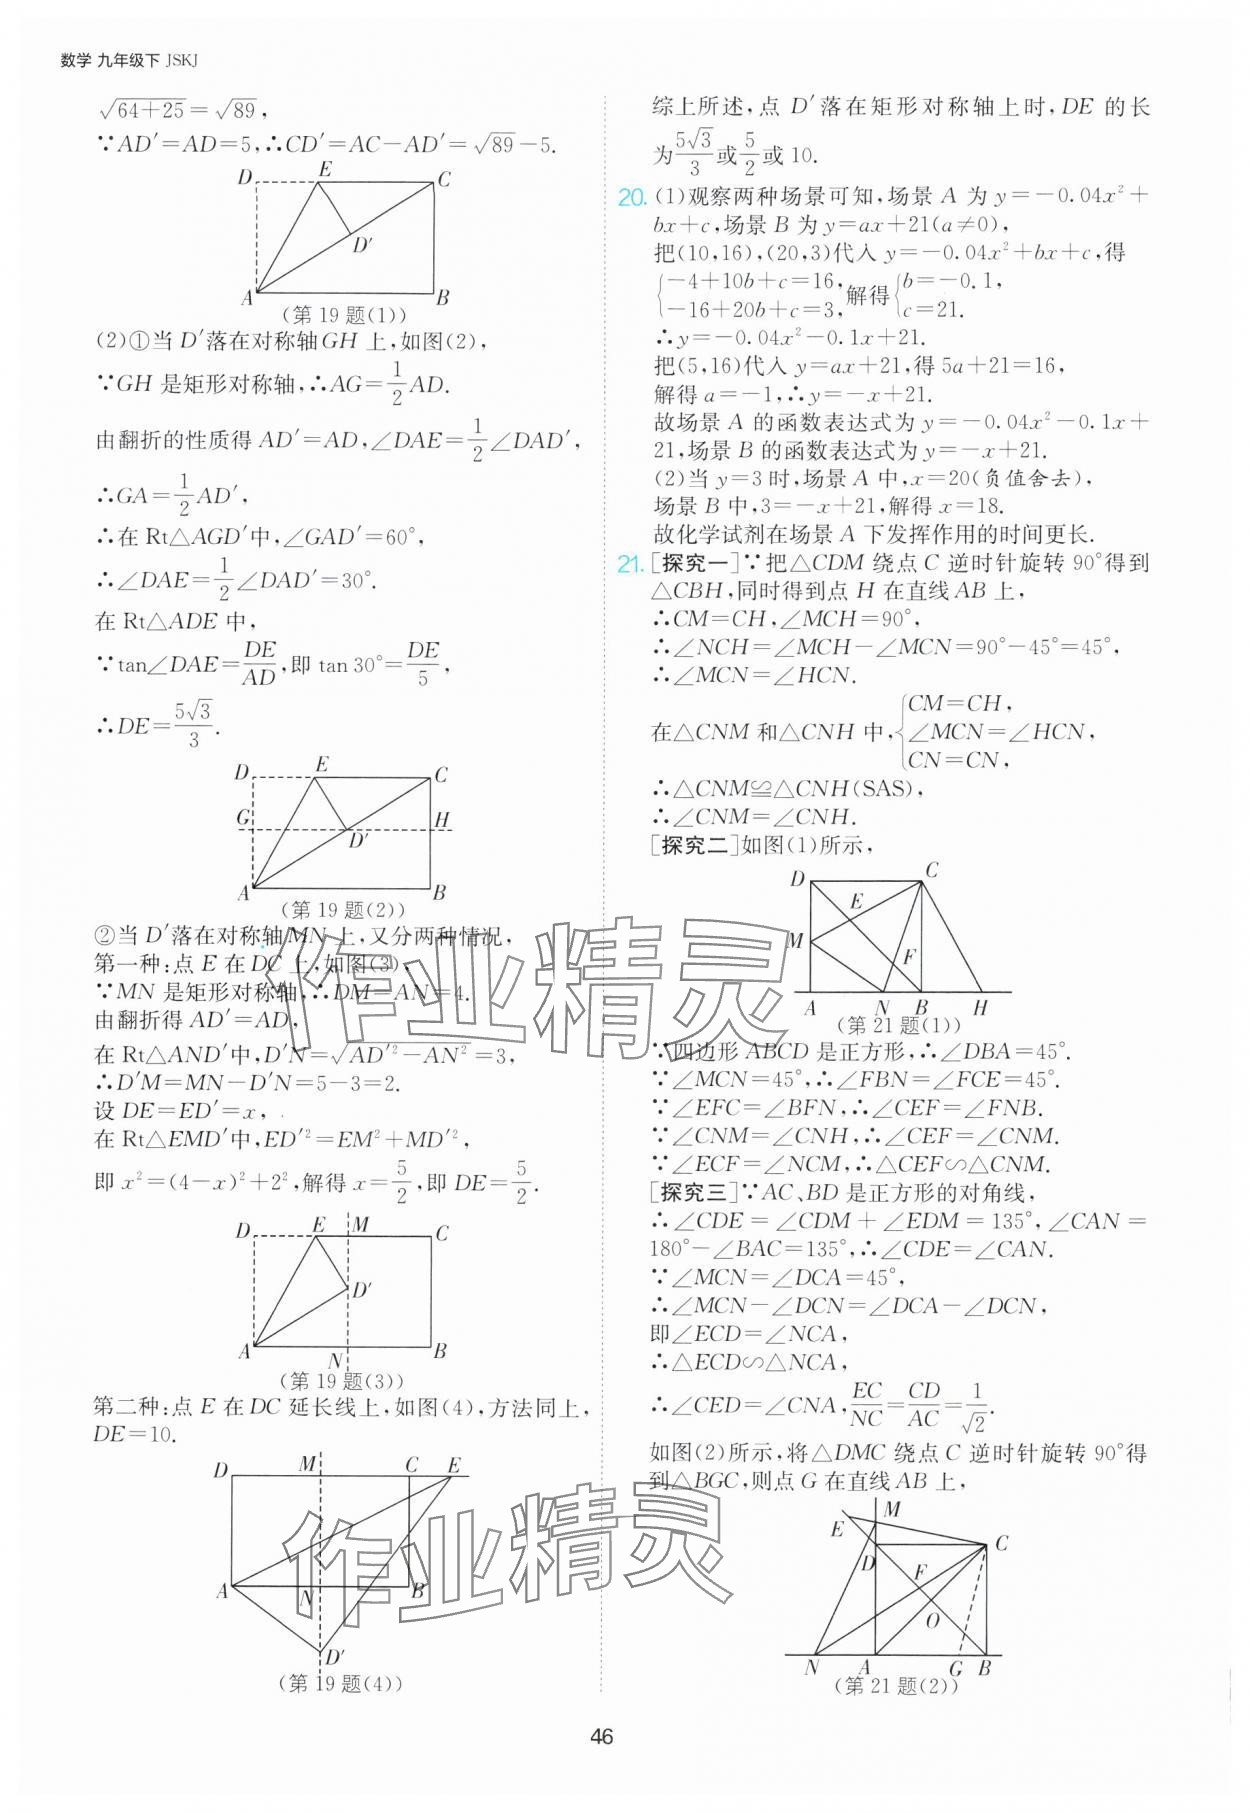 数学 九年级下 JSKJ
√(64+25)=√89,
∵AD′=AD=5,∴CD′=AC-AD′=√89-5.
D E C
D′
A B
(第19题(1))
(2)①当D′落在对称轴GH上,如图(2),
∵GH是矩形对称轴,∴AG=1/2AD.
由翻折的性质得AD′=AD,∠DAE=1/2∠DAD′,
∴GA=1/2AD′,
∴在Rt△AGD′中,∠GAD′=60°,
∴∠DAE=1/2∠DAD′=30°.
在Rt△ADE中,
∵tan∠DAE=DE/AD,即tan30°=DE/5,
∴DE=5√3/3.
D E C
G H
D′
A B
(第19题(2))
②当D′落在对称轴MN上,又分两种情况,
第一种:点E在DC上,如图(3),
∵MN是矩形对称轴,∴DM=AN=4.
由翻折得AD′=AD,
在Rt△AND′中,D′N=√(AD′²-AN²)=3,
∴D′M=MN-D′N=5-3=2.
设DE=ED′=x,
在Rt△EMD′中,ED′²=EM²+MD′²,
即x²=(4-x)²+2²,解得x=5/2,即DE=5/2.
D E M C
D′
A N B
(第19题(3))
第二种:点E在DC延长线上,如图(4),方法同上,
DE=10.
D M C E
A N B
D′
(第19题(4))
综上所述,点D′落在矩形对称轴上时,DE的长
为5√3/3或5/2或10.
20. (1)观察两种场景可知,场景A为y=-0.04x²+
bx+c,场景B为y=ax+21(a≠0),
把(10,16),(20,3)代入y=-0.04x²+bx+c,得
{-4+10b+c=16, -16+20b+c=3, 解得{b=-0.1, c=21.
∴y=-0.04x²-0.1x+21.
把(5,16)代入y=ax+21,得5a+21=16,
解得a=-1,∴y=-x+21.
故场景A的函数表达式为y=-0.04x²-0.1x+
21,场景B的函数表达式为y=-x+21.
(2)当y=3时,场景A中,x=20(负值舍去),
场景B中,3=-x+21,解得x=18.
故化学试剂在场景A下发挥作用的时间更长.
21. [探究一]∵把△CDM绕点C逆时针旋转90°得到
△CBH,同时得到点H在直线AB上,
∴CM=CH,∠MCH=90°,
∴∠NCH=∠MCH-∠MCN=90°-45°=45°,
∴∠MCN=∠HCN.
在△CNM和△CNH中,{CM=CH, ∠MCN=∠HCN, CN=CN,
∴△CNM≌△CNH(SAS),
∴∠CNM=∠CNH.
[探究二]如图(1)所示,
D C
E
M F
A N B H
(第21题(1))
∵四边形ABCD是正方形,∴∠DBA=45°.
∵∠MCN=45°,∴∠FBN=∠FCE=45°.
∵∠EFC=∠BFN,∴∠CEF=∠FNB.
∵∠CNM=∠CNH,∴∠CEF=∠CNM.
∵∠ECF=∠NCM,∴△CEF∽△CNM.
[探究三]∵AC、BD是正方形的对角线,
∴∠CDE=∠CDM+∠EDM=135°,∠CAN=
180°-∠BAC=135°,∴∠CDE=∠CAN.
∵∠MCN=∠DCA=45°,
∴∠MCN-∠DCN=∠DCA-∠DCN,
即∠ECD=∠NCA,
∴△ECD∽△NCA,
∴∠CED=∠CNA,EC/NC=CD/AC=1/√2.
如图(2)所示,将△DMC绕点C逆时针旋转90°得
到△BGC,则点G在直线AB上,
M
E C
D F
O
N A G B
(第21题(2))
作业精灵
作业精灵
46